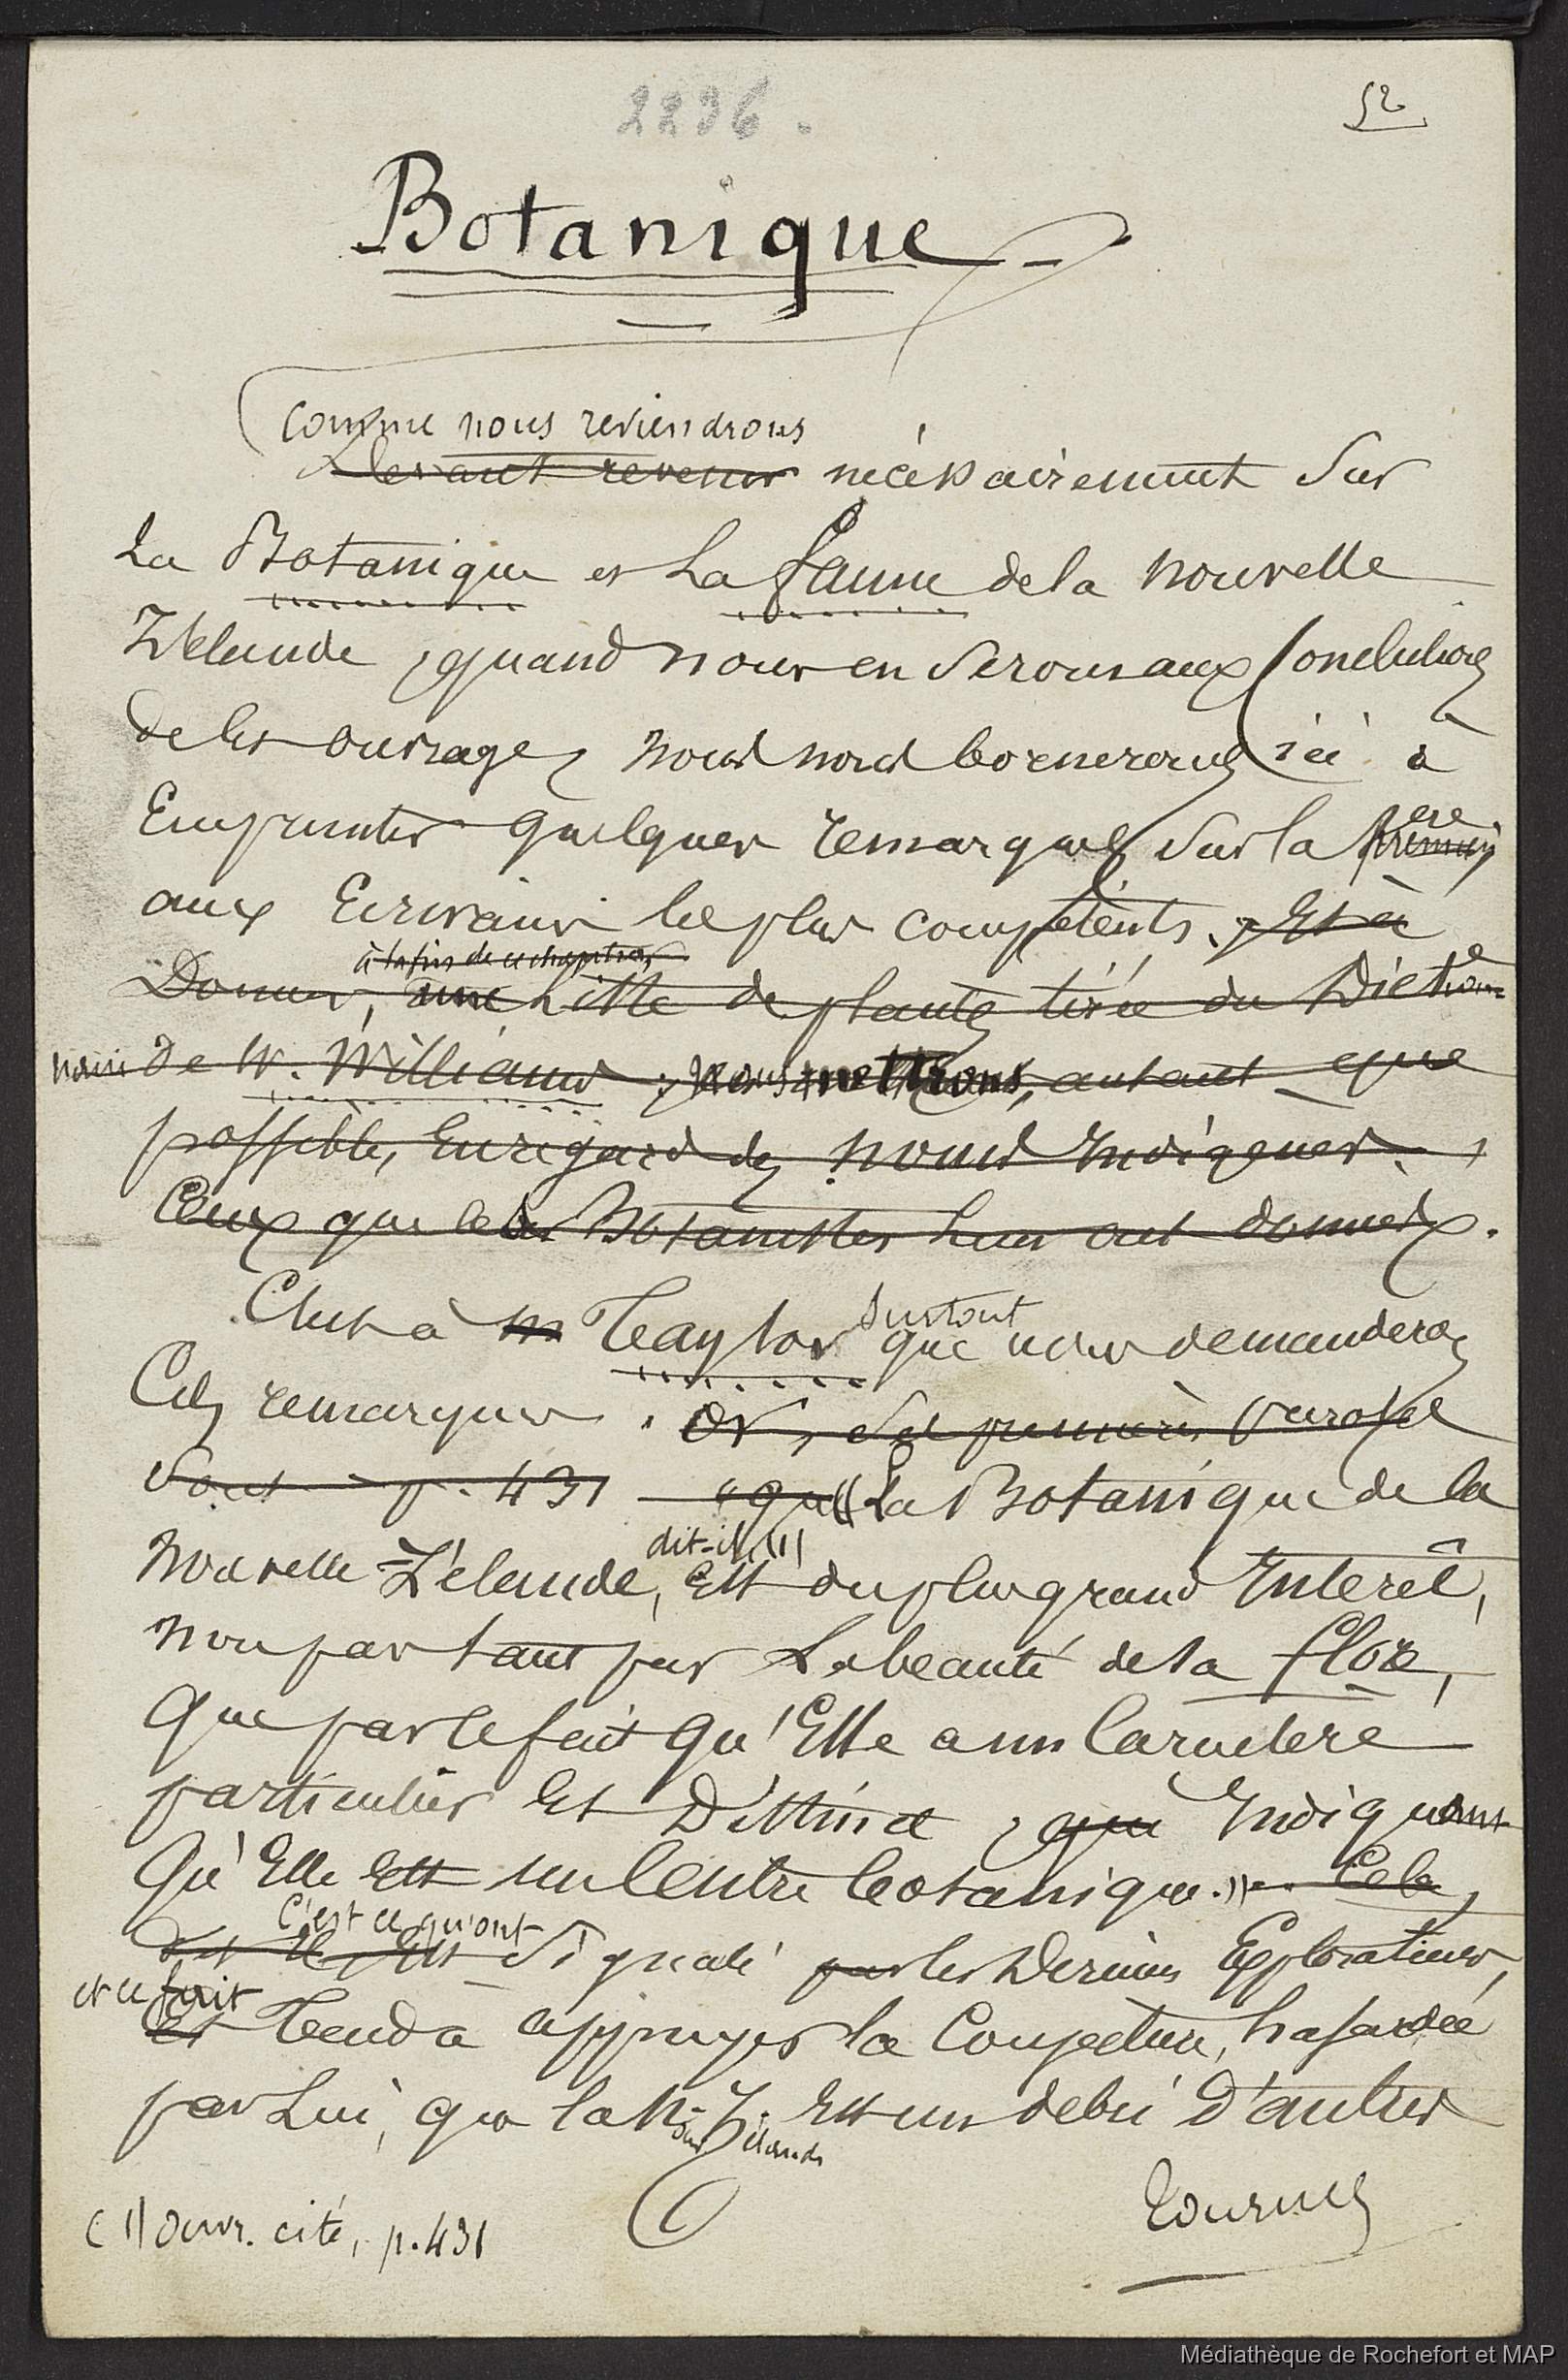 2236.
52
Botanique
Comme nous reviendrons
Devant revenir nécéssairement sur
la Botanique et la faune de la Nouvelle
Zélande, quand nous en serons aux Conclusions
de les ouvrages nous nous bornerons ici à
Emprunter quelques remarques sur la premiere
aux Ecrivains les plus compétents. Et à
à la fin de ce chapitre
Donner, une liste de plantes tirée du Dictionne
de W. Williams, nous mettrons, autant que
possible, en regard des noms Indigenes,
Ceux que les Botanistes leur ont donnés.
C'est à M Taylor surtout que nous demanderons
Ces remarques. Or, ses premières paroles
sont p. 431 "que "La Botanique de la
Nouvelle-Zélande, dit-il, (1) Est du plus grand Interêt,
non par tant par La beauté de sa flore,
que par le fait qu'Elle a un Caractere
particulier Et Distinct, qui Indiquant
qu'Elle Est un Centre botanique." Cela,
C'est ce qu'ont
signalé par les Derniers Explorateurs,
et ce fait
Et Tend à appuyer la Conjecture, hasardée
par Lui, que la N.-Z. Est un debri d'autres
Zélande
Tournez
(1) Ouvr. cité, p. 431
Médiathèque de Rochefort et MAP